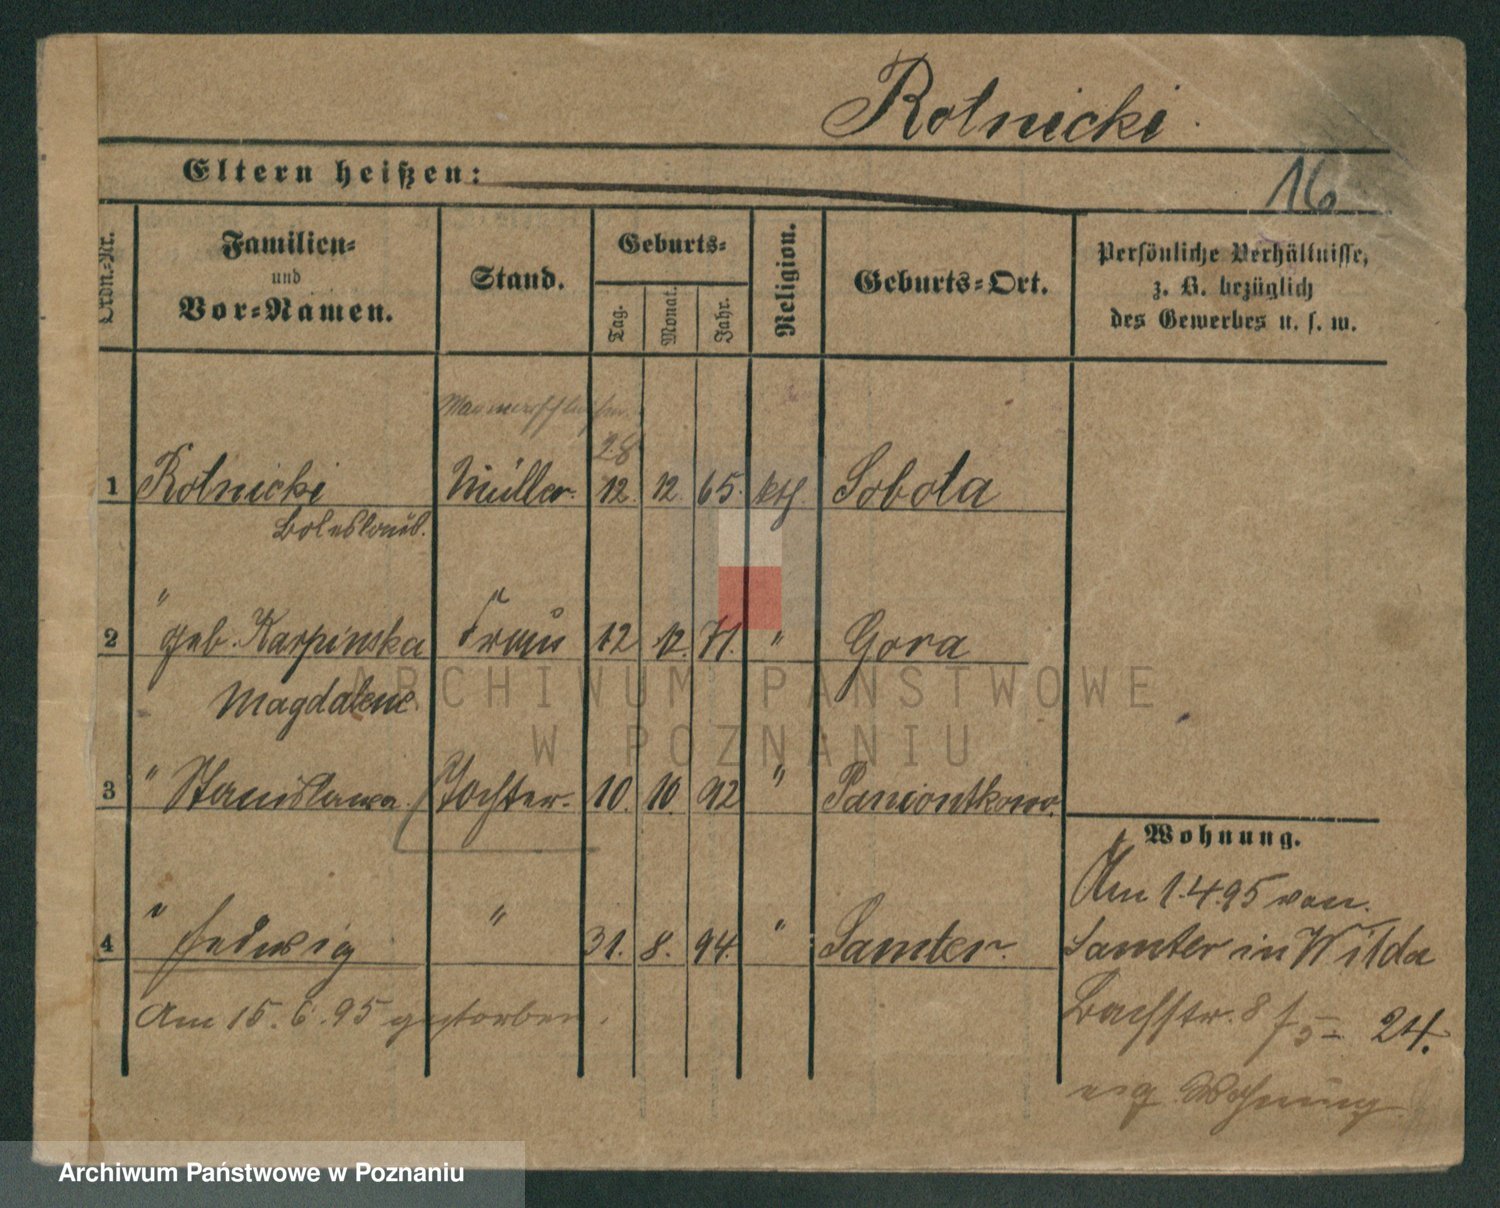 Rotnicki
Eltern heißen:
16
Ordn.-Nr.
Familien- und Vor-Namen.
Stand.
Geburts-
Tag.
Monat.
Jahr.
Religion.
Geburts-Ort.
Persönliche Verhältnisse,
z. B. bezüglich
des Gewerbes u. s. w.
28
1 Rotnicki Müller. 12. 12. 65. kth. Sobota
Boleslaus.
2 " geb. Karpinska Frau 12 12. 71. " Gora
Magdalene.
3 " Stanislawa. Tochter. 10. 10. 92 " Paniontkowo.
Wohnung.
Am 1.4.95 von
4 " Hedwig " 31. 8. 94. " Samter.
Samter in Wilda
Am 15.6.95 gestorben.
Bachstr. 8 24.
Wohnung
ARCHIWUM PAŃSTWOWE
W POZNANIU
Archiwum Państwowe w Poznaniu